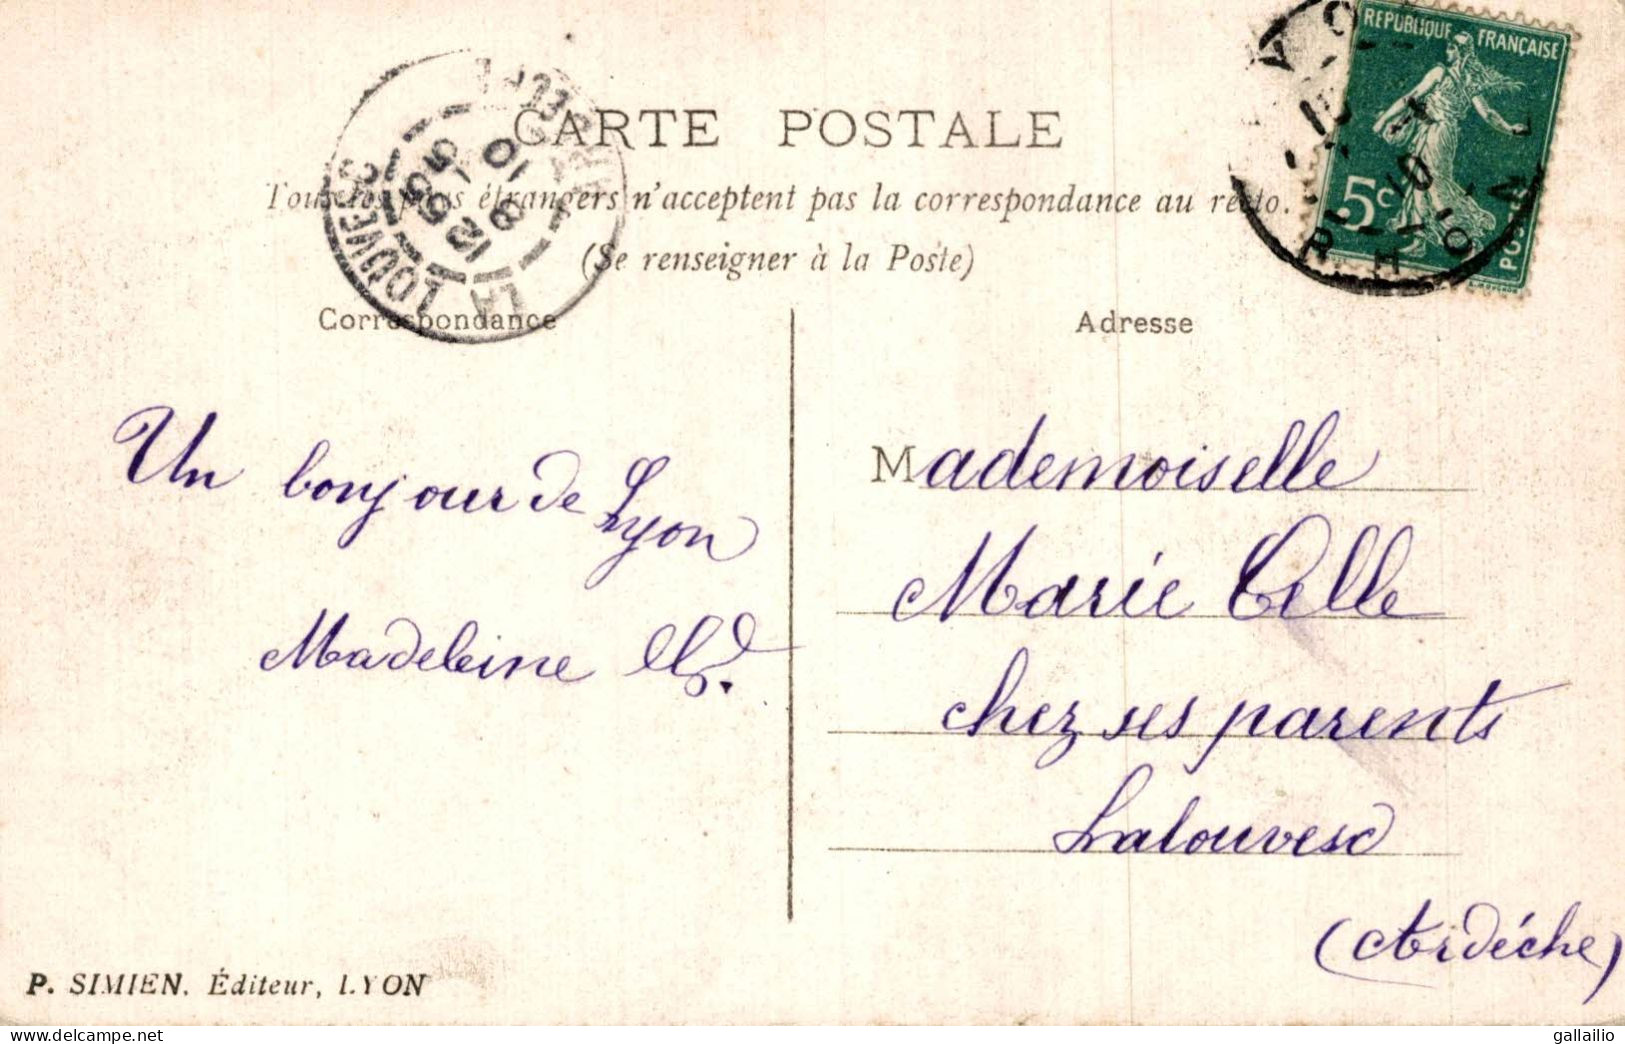 RÉPUBLIQUE FRANÇAISE
5c
POSTES
RHONE
LA LOUVESC
12 - 5
10
CARTE POSTALE
Tous les pays étrangers n'acceptent pas la correspondance au recto.
(Se renseigner à la Poste)
Correspondance
Adresse
Un bonjour de Lyon
Madeleine
Mademoiselle
Marie Celle
chez ses parents
Lalouvesc
(Ardéche)
P. SIMIEN. Éditeur, LYON
www.delcampe.net
gallailio